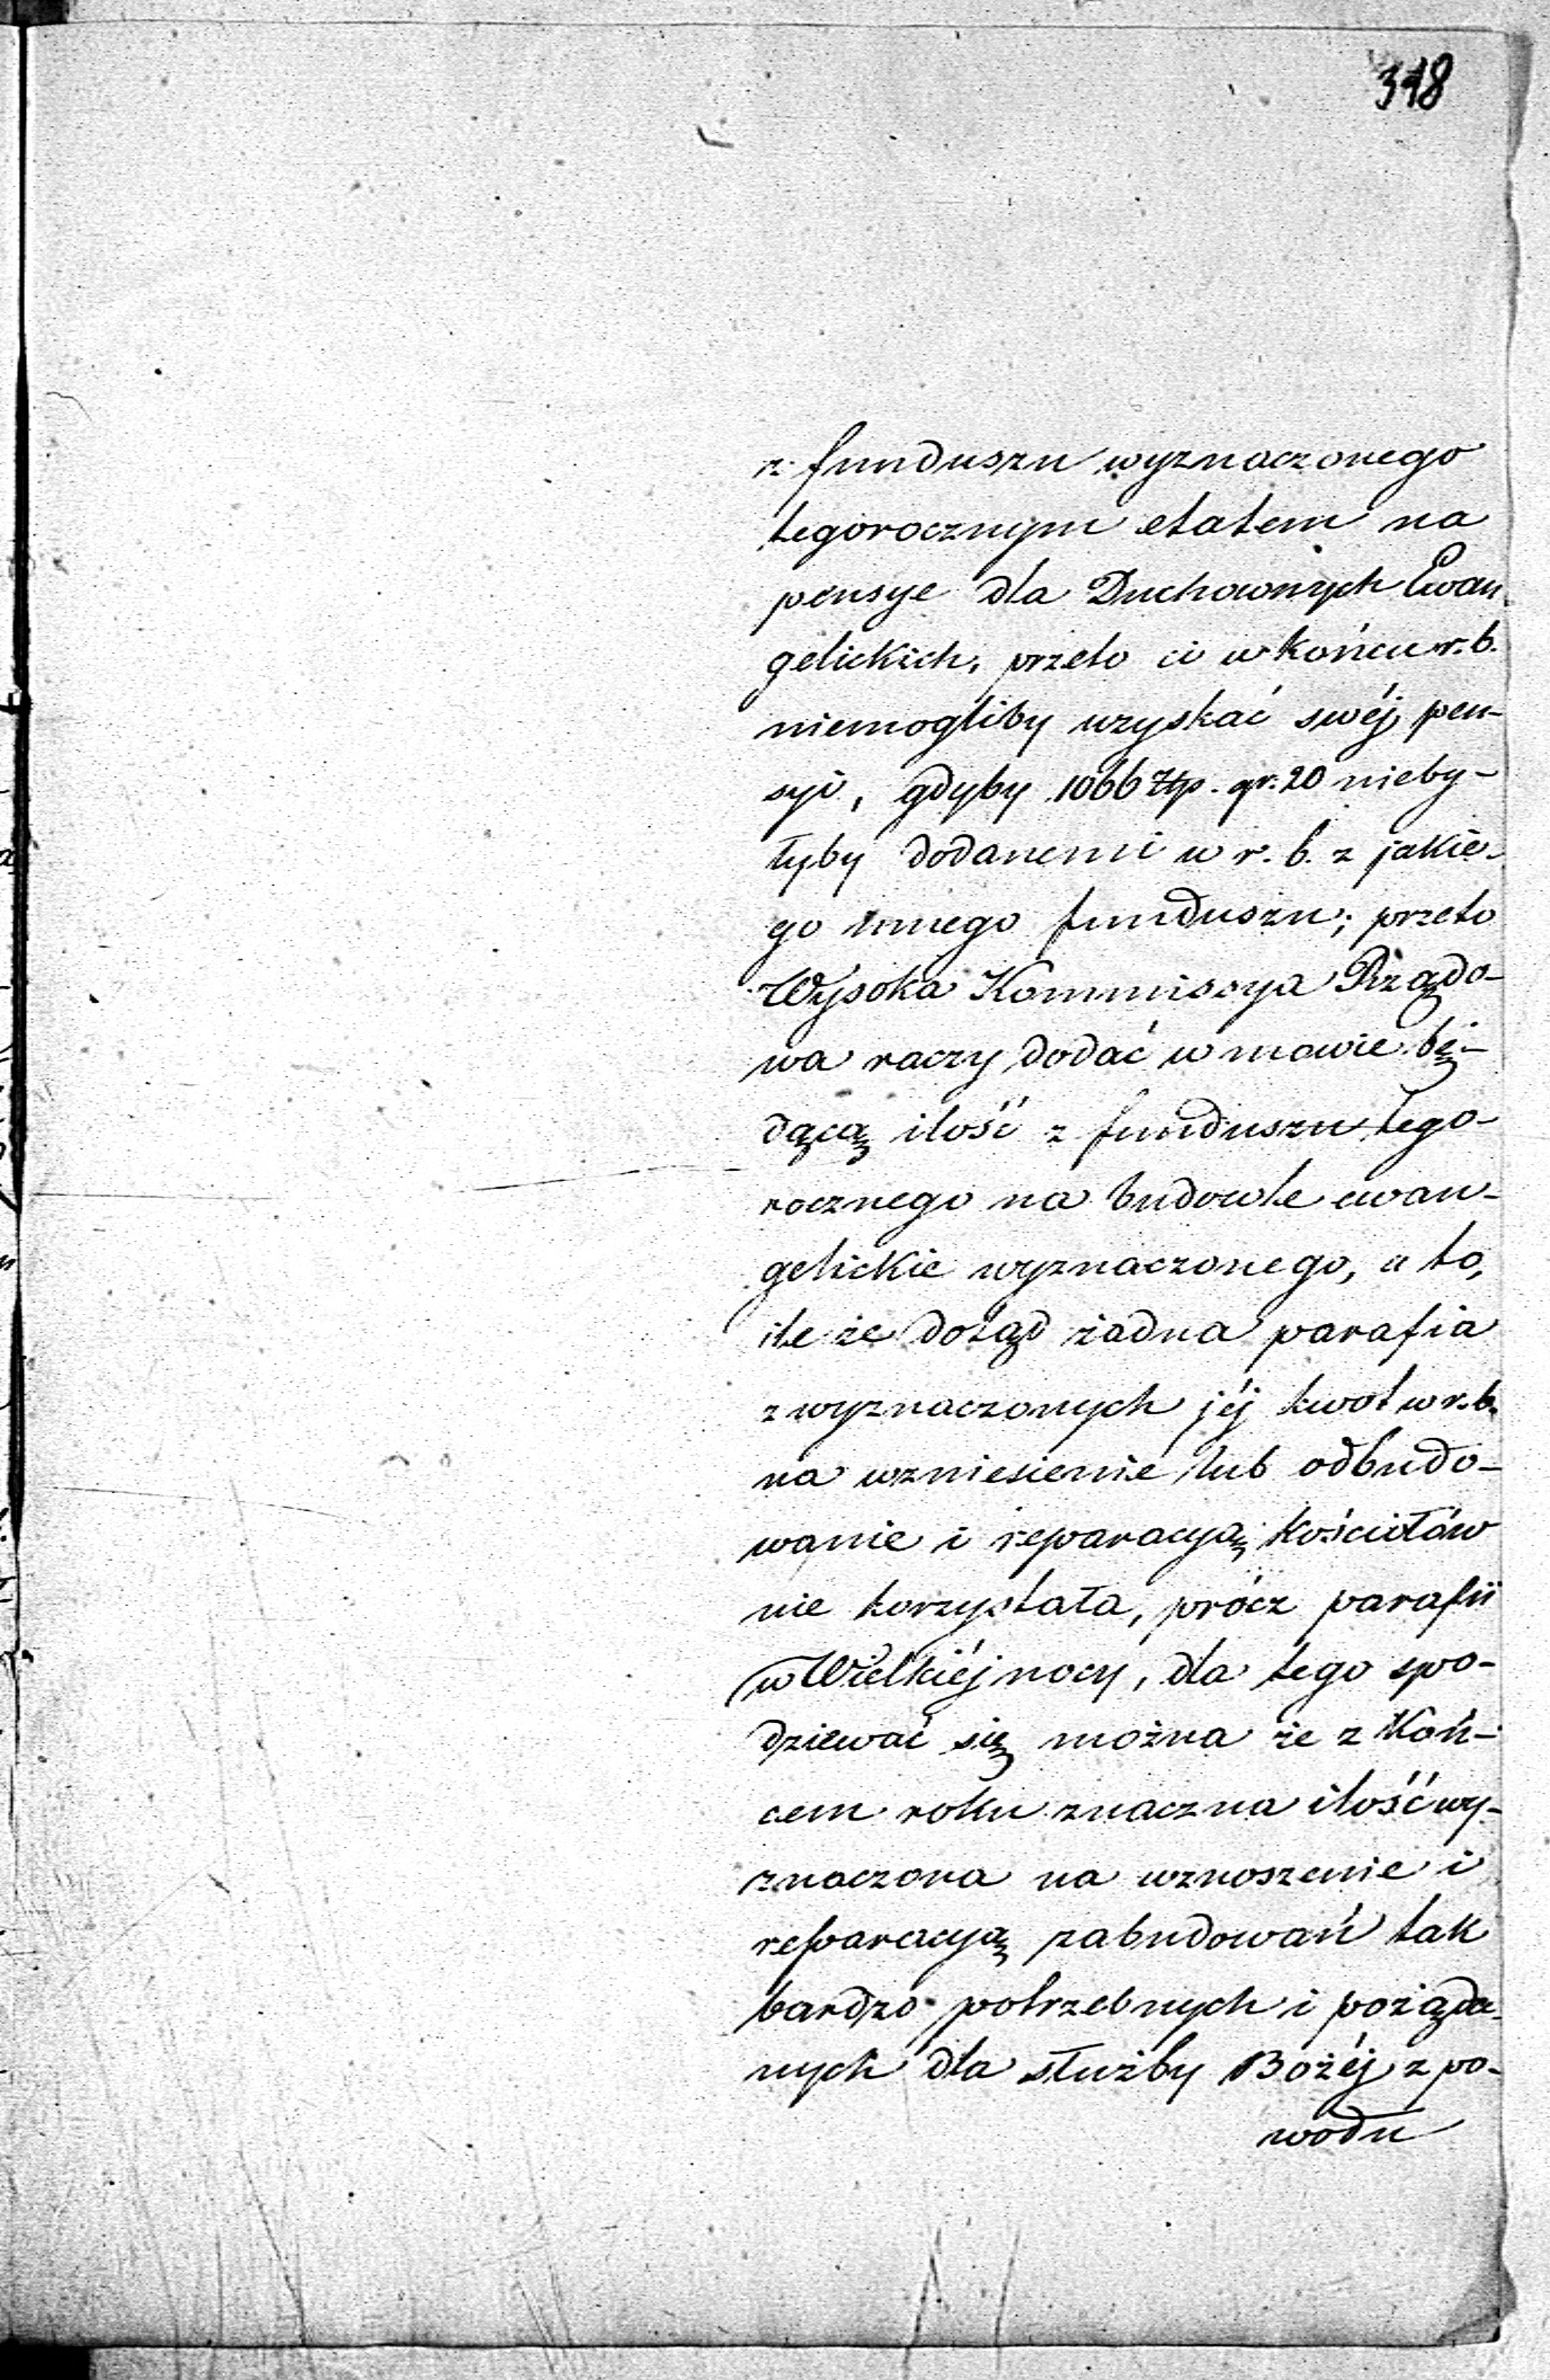 318
z funduszu wyznaczonego
tegorocznym etatem na
pensye dla Duchownych Ewan-
gelickich, przeto ci w końcu r. b.
niemogliby uzyskać swéj pen-
syi, gdyby 1066 Złp. gr: 20 nieby-
łyby dodanemi w r. b. z jakie-
go innego funduszu; przeto
Wysoka Kommissya Rządo-
wa raczy dodać w mowie bę-
dącą ilość z funduszu tego-
rocznego na budowle ewan-
gelickie wyznaczonego, a to,
ile że dotąd żadna parafia
z wyznaczonych jéj kwot w r. b.
na wzniesienie lub odbudo-
wanie i reparacyą Kościołów
nie korzystała, prócz parafii
w Wielkiéjnocy, dla tego spo-
dziewać się można że z Koń-
cem roku znaczna ilość wy-
znaczona na wznoszenie i
reparacyą zabudowań tak
bardzo potrzebnych i pożąda-
nych dla służby Bożéj z po-
wodu